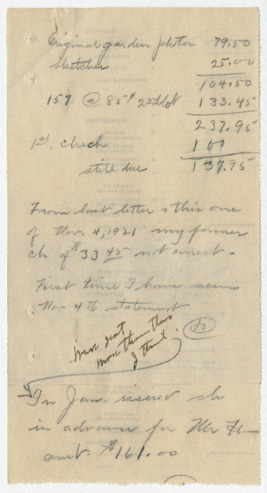 Original garden photos 79.50
Sketches 25.00
104.50
157 @ 85¢ 2nd lot 133.45
237.95
1st. check 100
still due 137.95
From last letter & this one
of Nov. 4, 1921 my former
ch of $33 45 not correct.
First time I have seen
Nov 4th statement
have sent
more than this
I think.
In Jan. issued ch
in advance for Mr
amt. $161.00